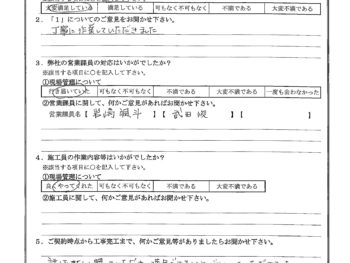 大変満足している 満足している 可もなく不可もなく 不満である 大変不満である
2．「1」についてのご意見をお聞かせ下さい。
丁寧に作業していただきました
3．弊社の営業課員の対応はいかがでしたか？
※該当する項目に○を記入して下さい。
①現場管理について
行き届いていた 可もなく不可もなく 不満である 大変不満である 一度も会わなかった
②営業課員に関して、何かご意見があればお聞かせ下さい。
営業課員名【 岩崎 颯斗 】【 武田 俊 】【 】
4．施工員の作業内容等はいかがでしたか？
※該当する項目に○を記入して下さい。
①現場管理について
良くやってくれた 可もなく不可もなく 不満である 大変不満である
②施工員に関して、何かご意見があればお聞かせ下さい。
5．ご契約時点から工事完工まで、何かご意見等がありましたらお聞かせ下さい。